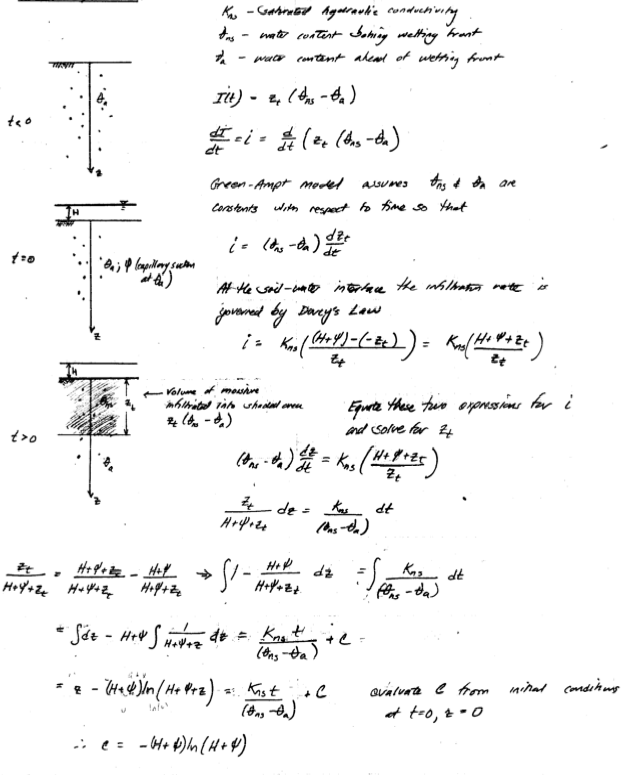 K_ns - Saturated hydraulic conductivity
θ_ns - water content behind wetting front
θ_a - water content ahead of wetting front
t<0
θ_a
z
I(t) = z_t (θ_ns - θ_a)
dI/dt = i = d/dt (z_t (θ_ns - θ_a))
Green-Ampt model assumes θ_ns & θ_a are
constants with respect to time so that
i = (θ_ns - θ_a) dz_t/dt
t=0
H
θ_a; Ψ (capillary suction
at θ_a)
z
At the soil-water interface the infiltration rate is
governed by Darcy's Law
i = K_ns ( ((H+Ψ)-(-z_t)) / z_t ) = K_ns ( (H+Ψ+z_t) / z_t )
t>0
H
z_t
θ_a
z
← Volume of moisture
infiltrated into shaded area
z_t (θ_ns - θ_a)
Equate these two expressions for i
and solve for z_t
(θ_ns - θ_a) dz/dt = K_ns ( (H+Ψ+z_t) / z_t )
z_t / (H+Ψ+z_t) dz = K_ns / (θ_ns - θ_a) dt
z_t / (H+Ψ+z_t) = (H+Ψ+z_t) / (H+Ψ+z_t) - (H+Ψ) / (H+Ψ+z_t) ⇒ ∫ 1 - (H+Ψ) / (H+Ψ+z_t) dz = ∫ K_ns / (θ_ns - θ_a) dt
= ∫dz - H+Ψ ∫ 1 / (H+Ψ+z) dz = K_ns t / (θ_ns - θ_a) + C
= z - (H+Ψ) ln (H+Ψ+z) = K_ns t / (θ_ns - θ_a) + C evaluate C from initial conditions
at t=0, z=0
∴ c = -(H+Ψ) ln (H+Ψ)